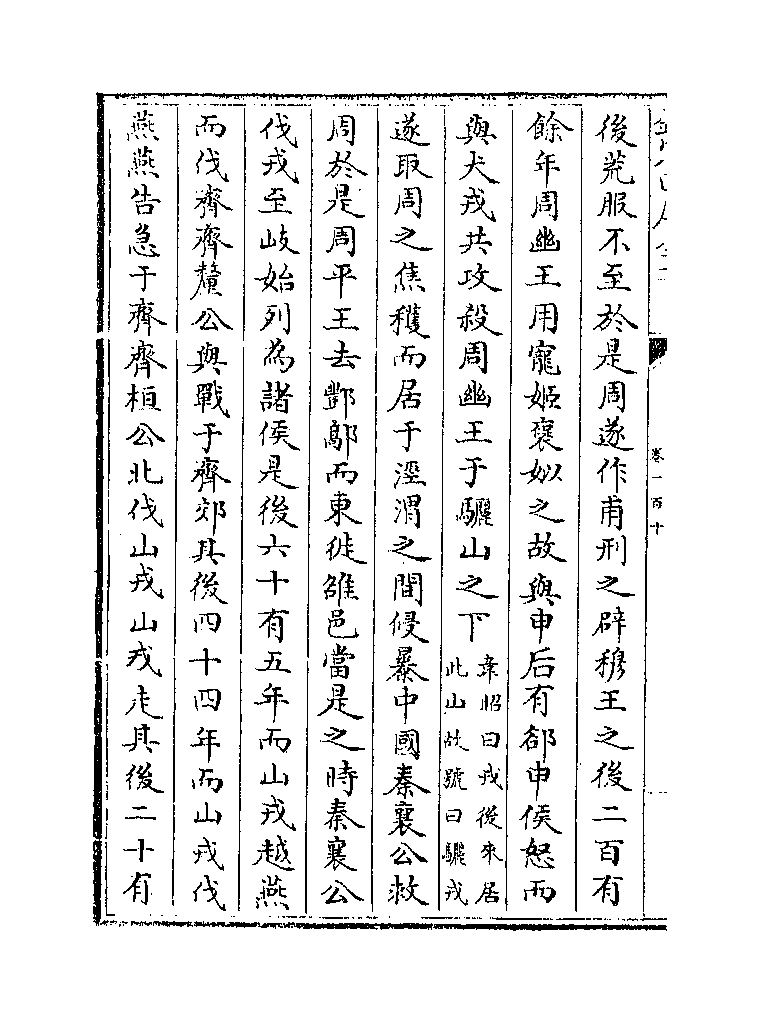 卷一百十
後荒服不至於是周遂作甫刑之辟穆王之後二百有
餘年周幽王用寵姬褒姒之故與申后有郤申侯怒而
與犬戎共攻殺周幽王于驪山之下韋昭曰戎後來居
此山故號曰驪戎
遂取周之焦穫而居于涇渭之間侵暴中國秦襄公救
周於是周平王去酆鄗而東徙雒邑當是之時秦襄公
伐戎至岐始列為諸侯是後六十有五年而山戎越燕
而伐齊齊釐公與戰于齊郊其後四十四年而山戎伐
燕燕告急于齊齊桓公北伐山戎山戎走其後二十有